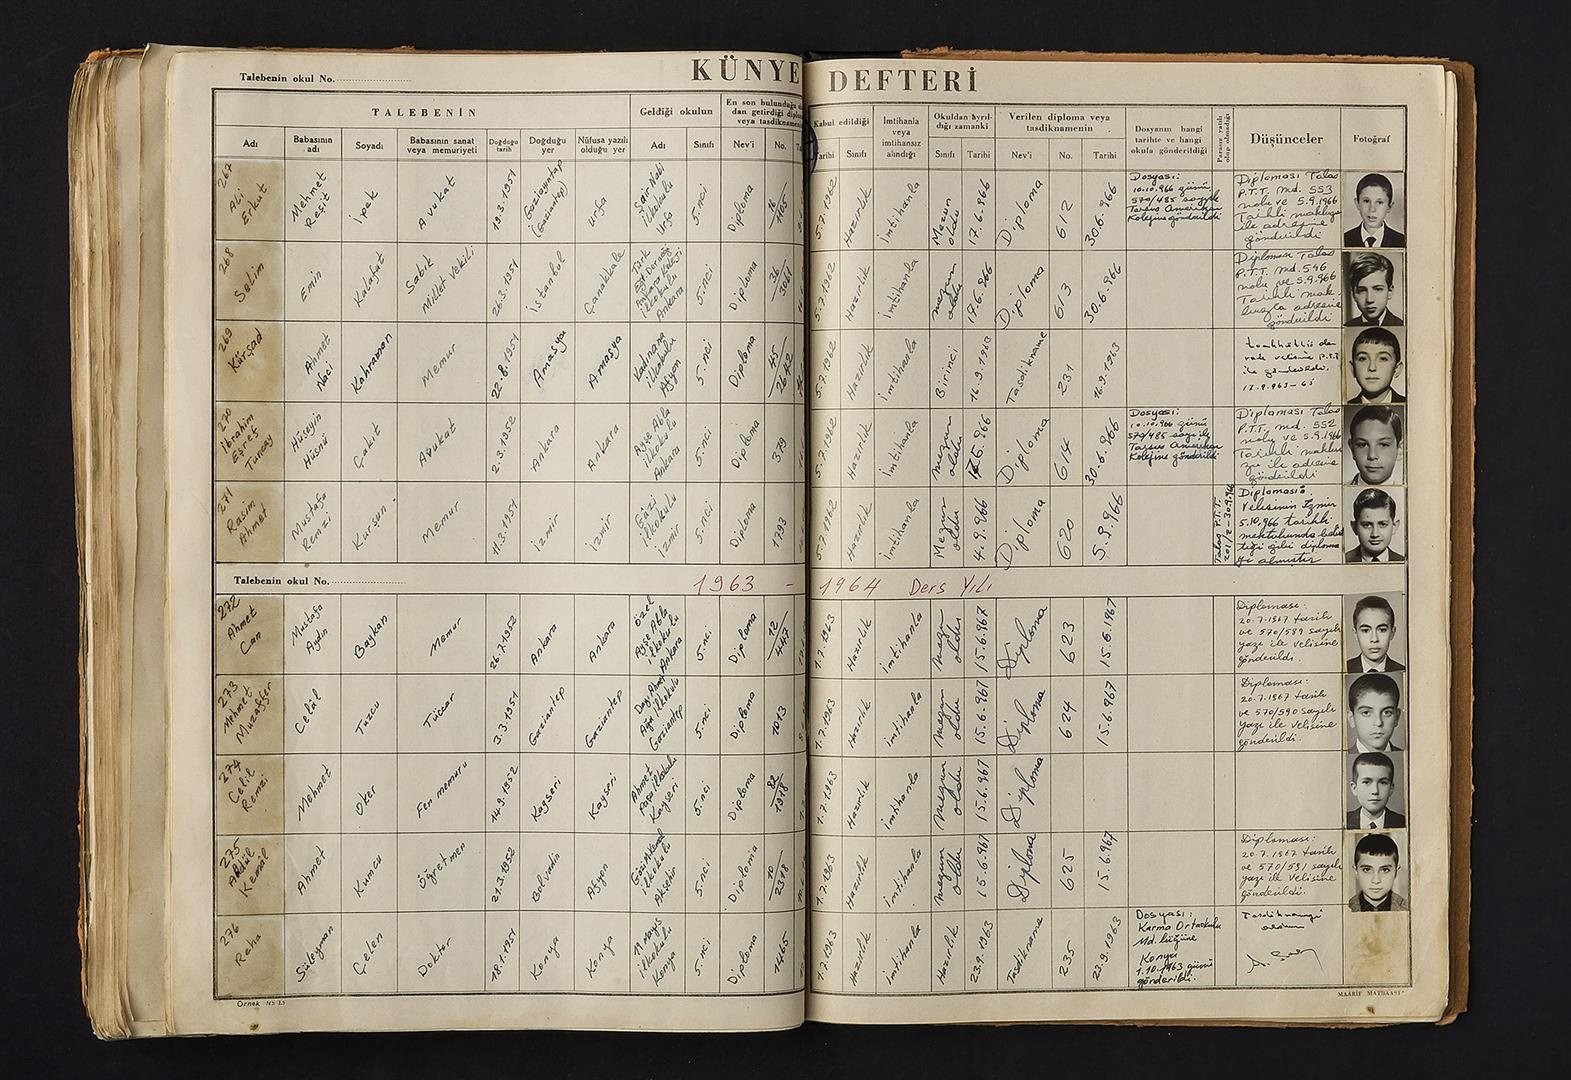 KÜNYE DEFTERİ
Talebenin okul No.
TALEBENİN
Geldiği okulun
En son bulunduğu
dan getirdiği
veya tasdiknamenin
Kabul edildiği
İmtihanla veya imtihansız alındığı
Okuldan ayrıldığı zamanki
Verilen diploma veya tasdiknamenin
Dosyanın hangi tarihte ve hangi okula gönderildiği
Düşünceler
Fotoğraf
Adı
Babasının adı
Soyadı
Babasının sanat veya memuriyeti
Doğduğu tarih
Doğduğu yer
Nüfusa yazılı olduğu yer
Adı
Sınıfı
Nev'i
No.
Tarihi
Sınıfı
Sınıfı
Tarihi
Nev'i
No.
Tarihi
267 Ali Erkut
Mehmet Reşit
İpek
Avukat
19.3.1951
Gaziayntap (Gaziantep)
Urfa
Şair Nabi ilkokulu Urfa
5.nci
Diploma
16/1105
5.7.1962
Hazırlık
İmtihanla
Mezun oldu
17.6.966
Diploma
612
30.6.966
Dosyası:
10.10.966 günü
570/485 sayılı
Tarsus Amerikan
Kolejine gönderildi
Diploması Talas
P.T.T. md. 553
nolu ve 5.9.1966
Tarihli makbuz
ile adresine
gönderildi
268 Selim
Emin
Kalafat
Sabık Millet Vekili
26.3.1951
İstanbul
Çanakkale
Türk
Ankara Koleji
ilkokulu
Ankara
5.nci
Diploma
36/3061
5.7.1962
Hazırlık
İmtihanla
mezun oldu
17.6.966
Diploma
613
30.6.966
Diploması Talas
P.T.T. Md. 546
nolu ve 5.9.966
Tarihli mak
buzla adresine
gönderildi
269 Kürşad
Ahmet Naci
Kahraman
Memur
22.8.1951
Amasya
Amasya
Kadınana ilkokulu Afyon
5.nci
Diploma
45/2642
5.7.1962
Hazırlık
İmtihanla
Birinci
16.9.1963
Tasdikname
231
16.9.1963
velisine P.T.T
ile gönderildi.
17.9.963-65
270 İbrahim Eşref Tuncay
Hüseyin Hüsnü
Çakıt
Avukat
2.3.1952
Ankara
Ankara
Ayşe Abla ilkokulu Ankara
5.nci
Diploma
379
5.7.1962
Hazırlık
İmtihanla
mezun oldu
17.6.966
Diploma
614
30.6.966
Dosyası:
10.10.966 günü
570/485 sayı ile
Tarsus Amerikan
Kolejine gönderildi
Diploması Talas
P.T.T. md. 552
nolu ve 5.9.1966
Tarihli makbu
zu ile adresine
gönderildi
271 Rasim Ahmet
Mustafa Remzi
Kurşun
Memur
11.3.1951
İzmir
İzmir
Gazi ilkokulu İzmir
5.nci
Diploma
1793
5.7.1962
Hazırlık
İmtihanla
Mezun oldu
4.9.966
Diploma
620
5.9.966
Talas P.T.T.
201/2-30.9.966
Diploması:
Velisinin İzmir
5.10.966 tarihli
mektubunda
diploma
yi almıştır
Talebenin okul No.
1963 - 1964 Ders Yılı
272 Ahmet Can
Mustafa Aydın
Baykan
Memur
26.7.1952
Ankara
Ankara
Özel Ayşe Abla ilkokulu Ankara
5.nci
Diploma
12/447
1.7.1963
Hazırlık
İmtihanla
mezun oldu
15.6.967
Diploma
623
15.6.1967
Diploması:
20.7.1967 tarih
ve 570/589 sayılı
yazı ile velisine
gönderildi.
273 Mehmet Muzaffer
Celâl
Tuzcu
Tüccar
3.3.1951
Gaziantep
Gaziantep
Dayı Ahmet Ağa ilkokulu Gaziantep
5.nci
Diploma
1013
1.7.1963
Hazırlık
İmtihanla
mezun oldu
15.6.967
Diploma
624
15.6.1967
Diploması:
20.7.1967 tarih
ve 570/590 sayılı
yazı ile velisine
gönderildi.
274 Celil Remzi
Mehmet
Oker
Fen memuru
14.9.1952
Kayseri
Kayseri
Ahmet Paşa ilkokulu Kayseri
5.nci
Diploma
82/1918
1.7.1963
Hazırlık
İmtihanla
mezun oldu
15.6.967
Diploma
275 Abdül Kemâl
Ahmet
Kumcu
Öğretmen
21.3.1952
Bolvadin
Afyon
Gazi M.Kemal ilkokulu Akşehir
5.nci
Diploma
10/2318
1.7.1963
Hazırlık
İmtihanla
mezun oldu
15.6.967
Diploma
625
15.6.967
Diploması:
20.7.1967 tarih
ve 570/591 sayılı
yazı ile velisine
gönderildi.
276 Reha
Süleyman
Çelen
Doktor
18.1.1951
Konya
Konya
19 Mayıs ilkokulu Konya
5.nci
Diploma
1465
1.7.1963
Hazırlık
İmtihanla
Hazırlık
23.9.1963
Tasdikname
235
23.9.1963
Dosyası:
Karma Ortaokulu
Md.lüğüne
Konya
1.10.1963 günü
gönderildi.
Tasdiknameyi
aldım
Örnek No 15
MAARİF MATBAASI